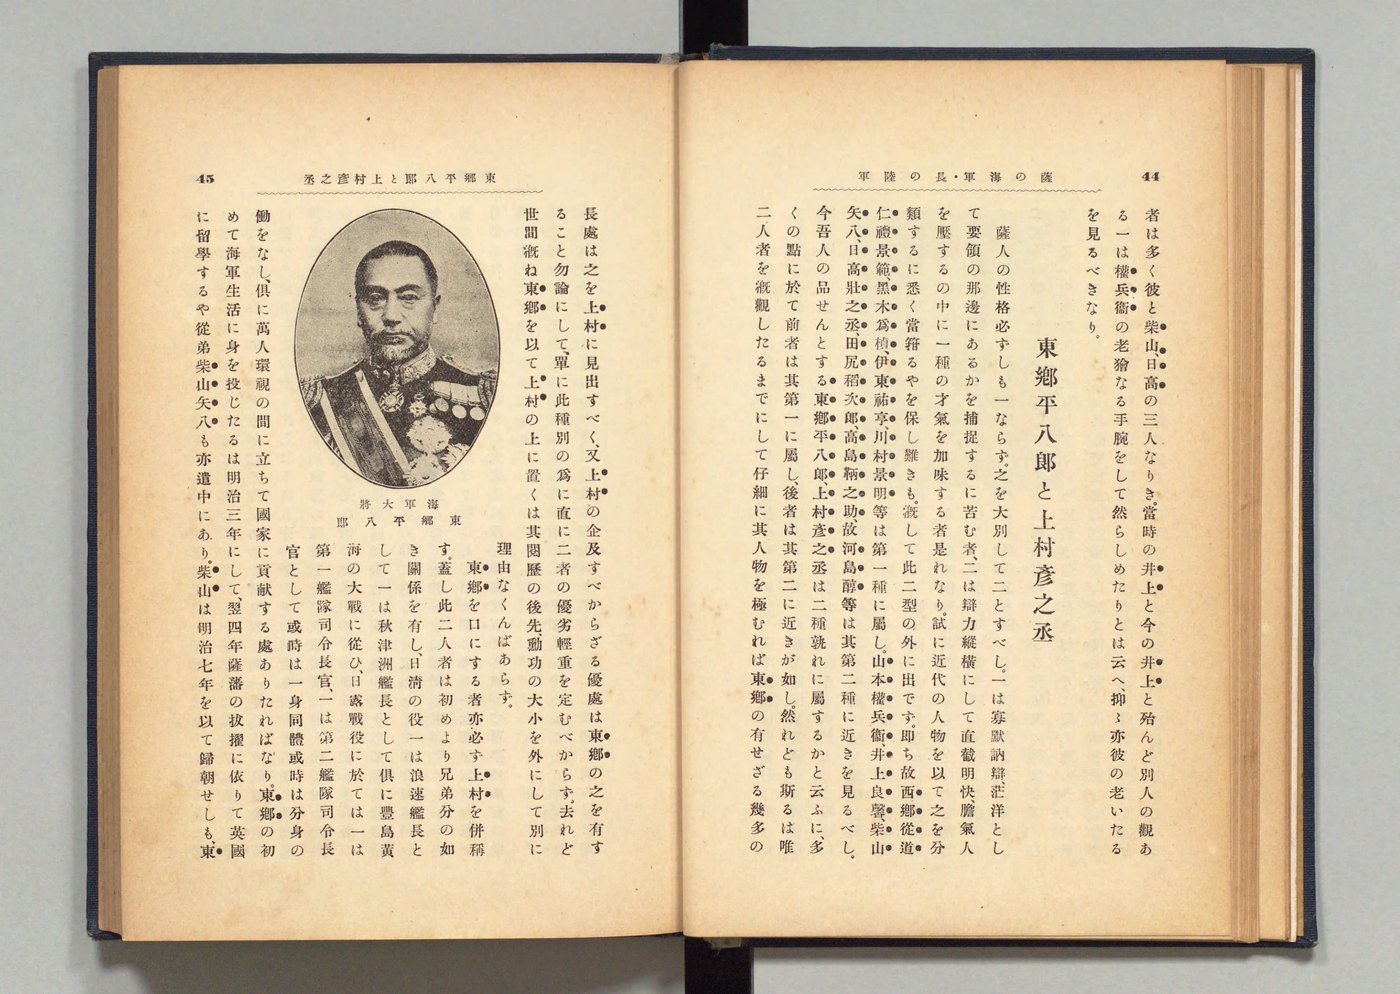 44
薩の海軍・長の陸軍
者は多く彼と柴山、日高の三人なりき。當時の井上と今の井上と殆んど別人の觀あ
る一は權兵衞の老獪なる手腕をして然らしめたりとは云へ、抑〻亦彼の老いたる
を見るべきなり。
東鄕平八郞と上村彥之丞
薩人の性格必ずしも一ならず。之を大別して二とすべし。一は寡默訥辯、茫洋とし
て要領の那邊にあるかを捕捉するに苦む者、二は辯力縱橫にして直截明快膽氣人
を壓するの中に一種の才氣を加味する者是れなり。試に近代の人物を以て之を分
類するに悉く當符るやを保し難きも。漑して此二型の外に出です。卽ち故西鄕從道
仁禮景範、黑木爲楨、伊東祐亨、川村景明等は第一種に屬し。山本權兵衞、井上良馨、柴山
矢八、日高壯之丞、田尻稻次郞、高島鞆之助、故河島醇等は其第二種に近きを見るべし。
今吾人の品せんとする東鄕平八郞、上村彥之丞は二種孰れに屬するかと云ふに、多
くの點に於て前者は其第一に屬し、後者は其第二に近きが如し。然れども斯るは唯
二人者を漑觀したるまでにして仔細に其人物を極むれば東鄕の有せざる幾多の
45
東鄕平八郞と上村彥之丞
長處は之を上村に見出すべく、又上村の企及すべからざる優處は東鄕の之を有す
ること勿論にして、單に此種別の爲に直に二者の優劣輕重を定むべからず。去れど
世間漑ね東鄕を以て上村の上に置くは其閱歷の後先、動功の大小を外にして別に
理由なくんばあらす。
東鄕を口にする者亦必す上村を併稱
す。蓋し此二人者は初めより兄弟分の如
き關係を有し、日淸の役一は浪速艦長と
して一は秋津洲艦長として俱に豐島黃
海の大戰に從ひ、日露戰役に於ては一は
第一艦隊司令長官、一は第二艦隊司令長
官として或時は一身同體或時は分身の
海軍大將
東鄕平八郞
働をなし、俱に萬人環視の間に立ちて國家に貢献する處ありたればなり。東鄕の初
めて海軍生活に身を投じたるは明治三年にして、翌四年薩藩の拔擢に依りて英國
に留學するや從弟柴山矢八も亦遣中にあり。柴山は明治七年を以て歸朝せしも、東